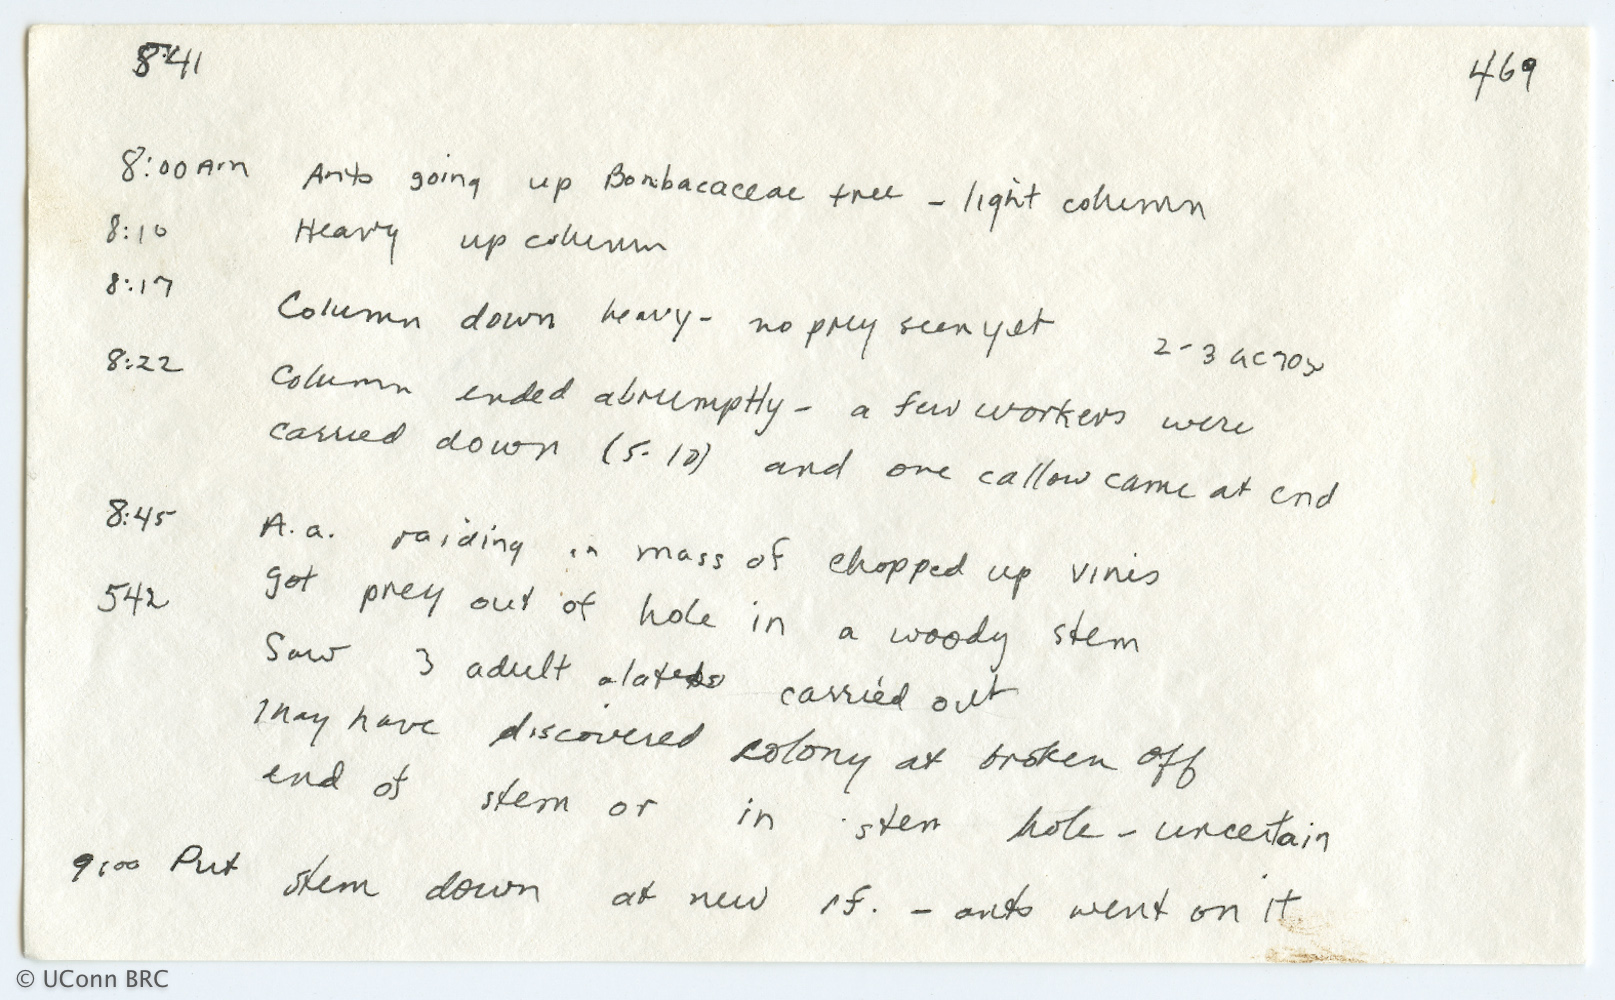 541 469
8:00 Am Ants going up Bombacaceae tree - light column
8:10 Heavy up column
8:17 Column down heavy - no prey seen yet
2-3 across
8:22 Column ended abrumptly - a few workers were
carried down (5-10) and one callow came at end
8:45 A.a. raiding in mass of chopped up vines
542 got prey out of hole in a woody stem
Saw 3 adult alates carried out
may have discovered colony at broken off
end of stem or in stem hole - uncertain
9:00 Put stem down at new rf. - ants went on it
© UConn BRC